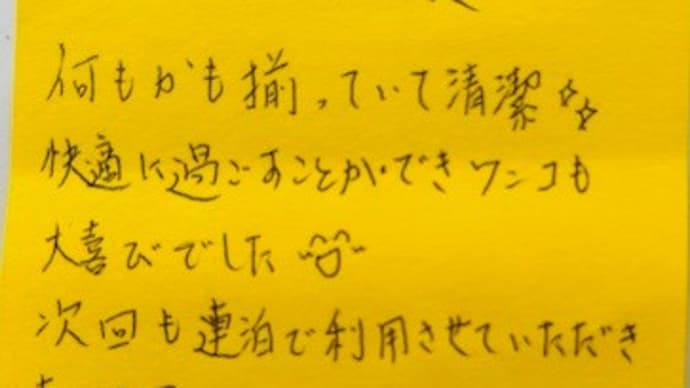 何もかも揃っていて清潔
快適に過ごすことができワンコも
大喜びでした
次回も連泊で利用させていただき